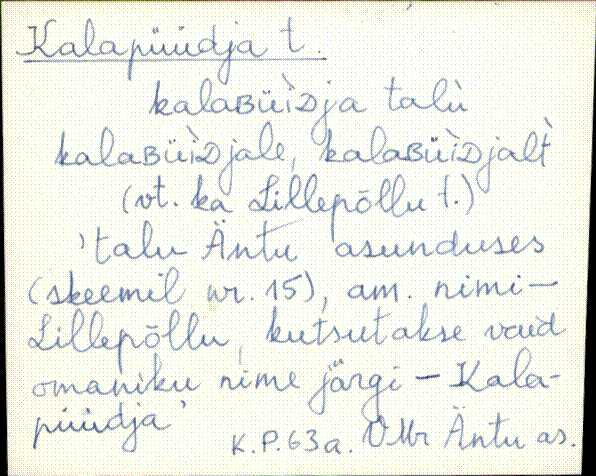 Kalapüüdja t.
kalaBüìDja talù
kalaBüìDjale, kalaBüìDjalt̀
(vt. ka Lillepõllu t.)
'talu Äntu asunduses
(skeemil nr. 15), am. nimi –
Lillepõllu, kutsutakse vaid
omaniku nime järgi – Kala-
püüdja'
K.P. 63a. VMr Äntu as.